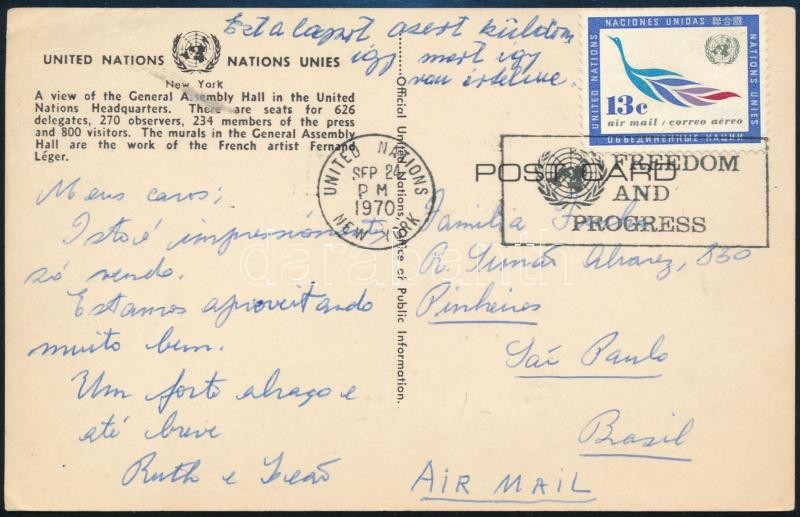 Ezt a lapot azert küldöm
így mert így
van értelme.
UNITED NATIONS NATIONS UNIES
New York
A view of the General Assembly Hall in the United
Nations Headquarters. There are seats for 626
delegates, 270 observers, 234 members of the press
and 800 visitors. The murals in the General Assembly
Hall are the work of the French artist Fernand
Léger.
Official United Nations, Office of Public Information.
UNITED NATIONS
NACIONES UNIDAS 聯合國
NATIONS UNIES
13c
air mail / correo aéreo
ОБЪЕДИНЕННЫЕ НАЦИИ
UNITED NATIONS
SEP 24
PM
1970
NEW YORK
POST CARD
FREEDOM
AND
PROGRESS
Meus caros;
Isto é impressionante
só vendo.
Estamos aproveitando
muito bem.
Um forte abraço e
até breve
Ruth e
Familia
R. Simão Alvarez, 830
Pinheiros
São Paulo
Brasil
AIR MAIL
darabanth